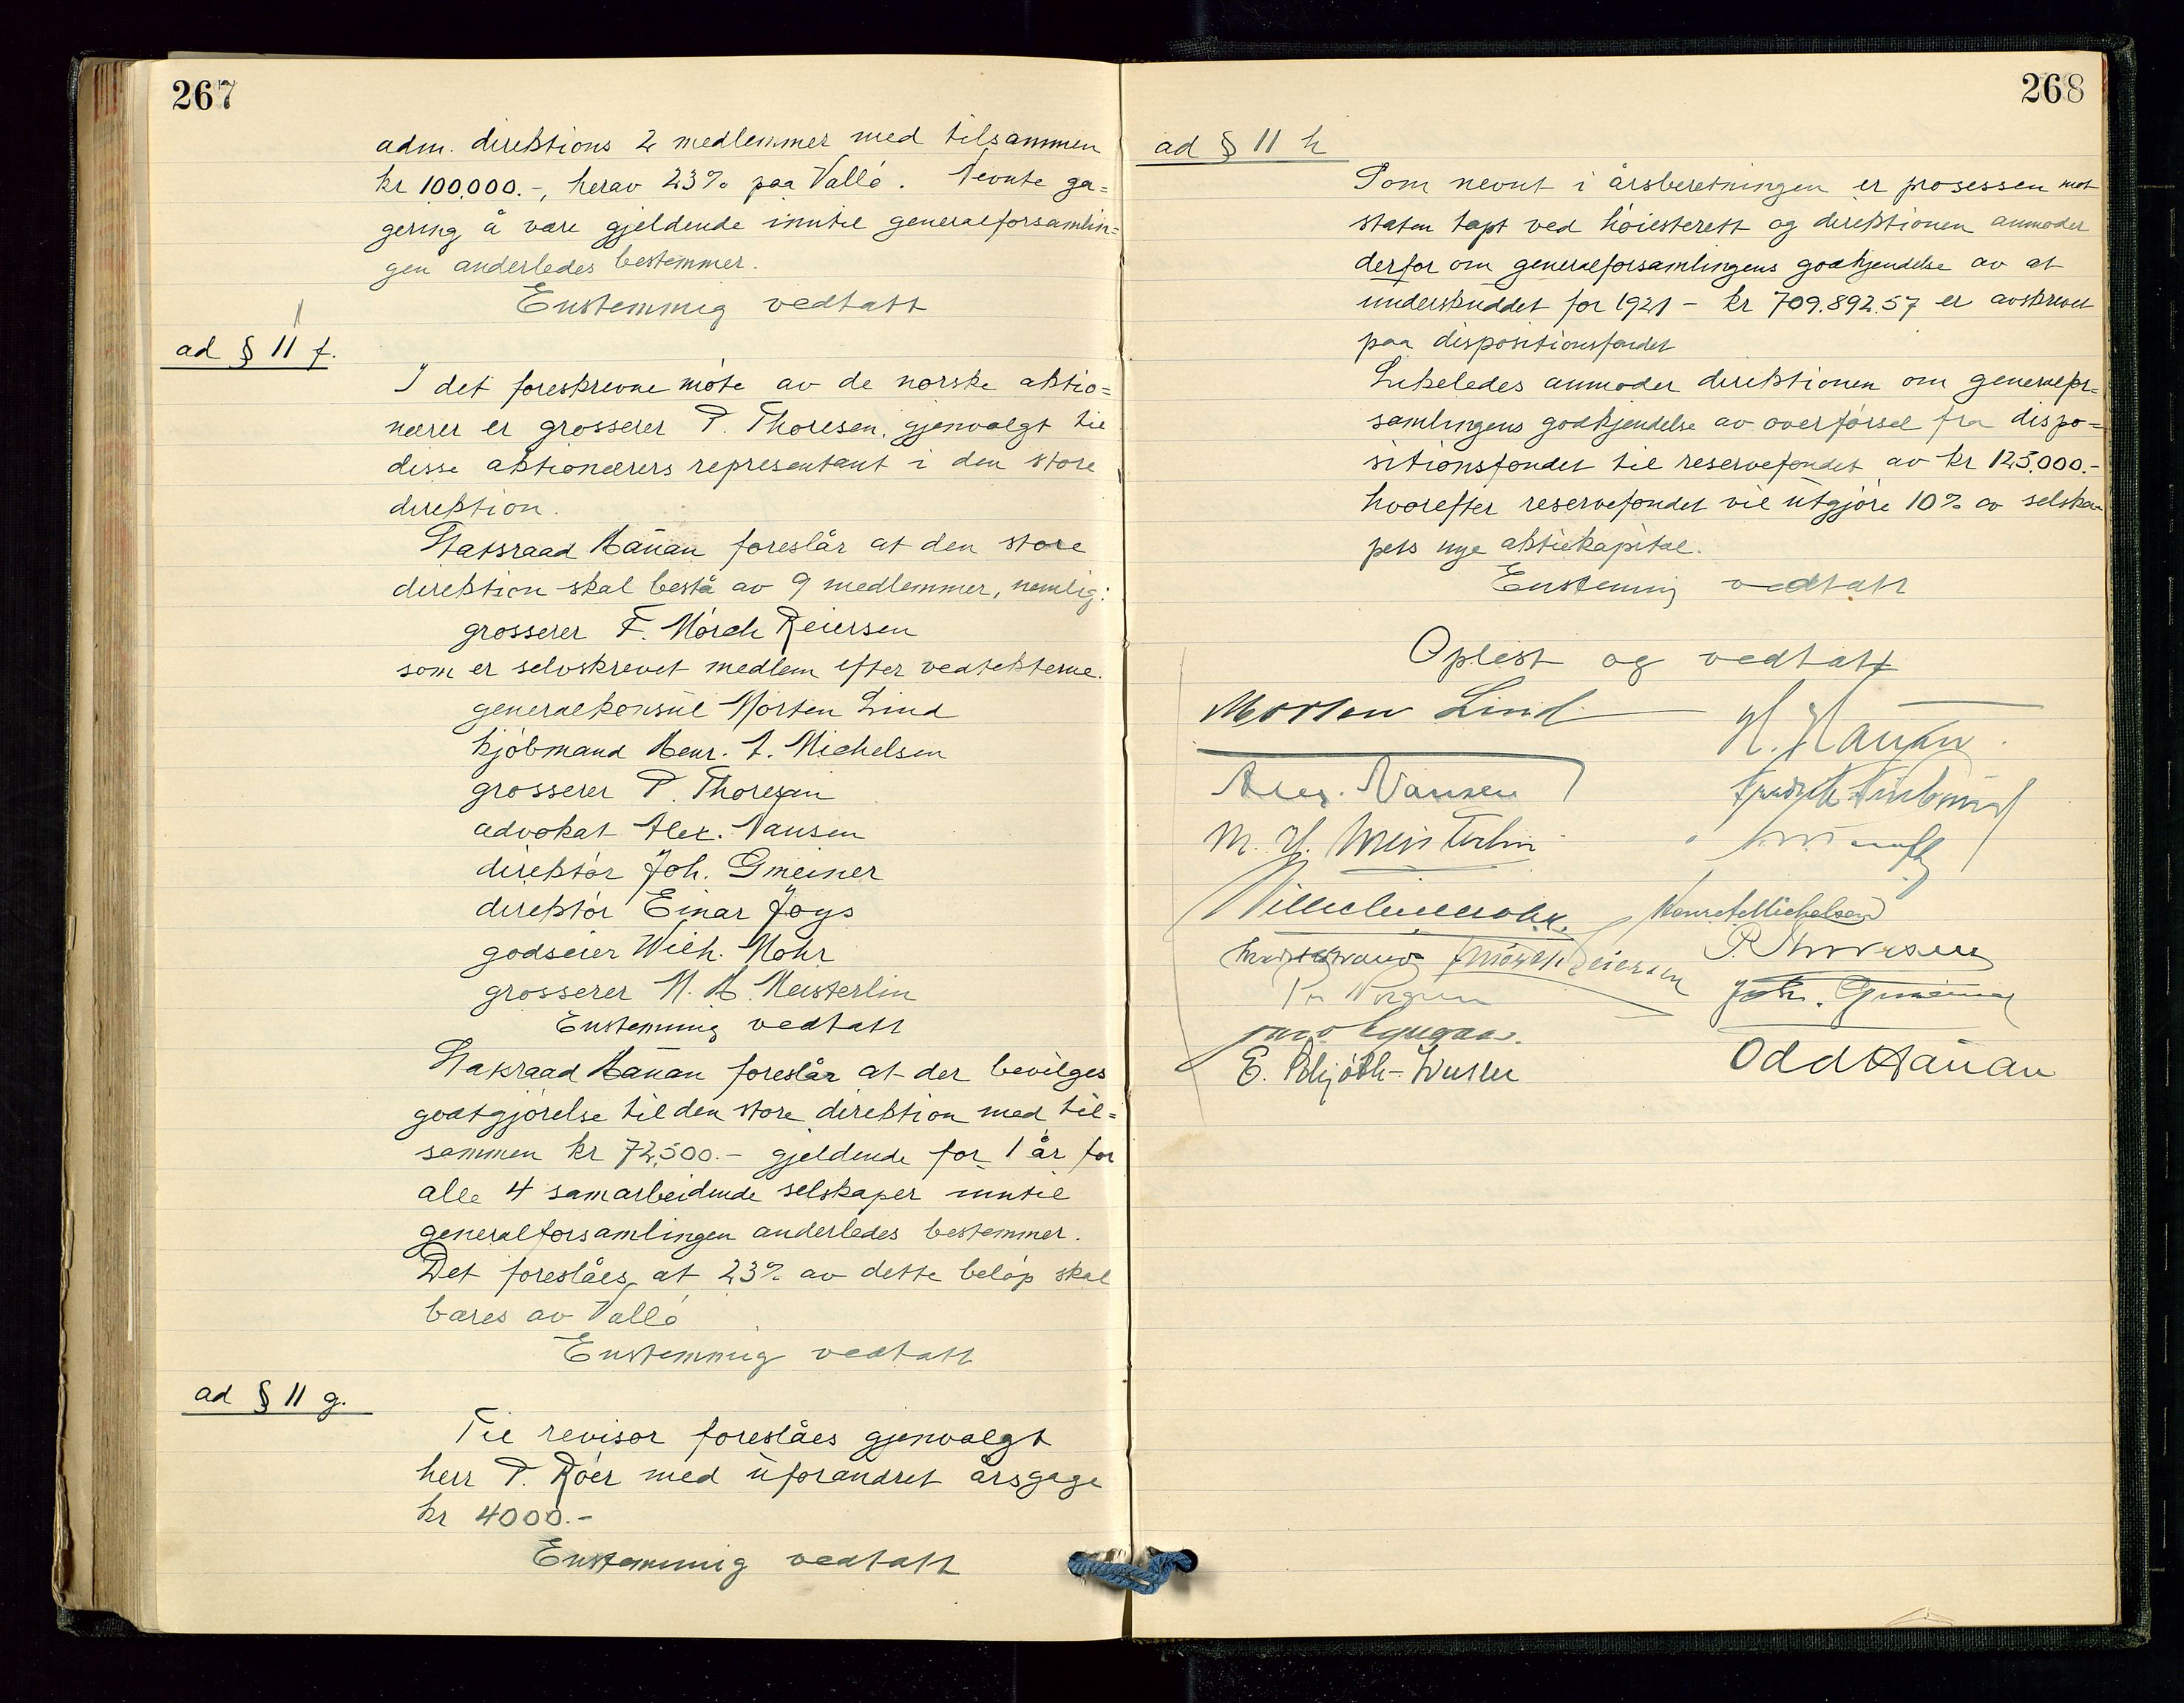 267
adm. direktions 2 medlemmer med tilsammen
kr 100,000.-, herav 23% paa Vallö. Nevnte ga=
gering å være gjeldende inntil generalforsamlin=
gen anderledes bestemmer.
Enstemmig vedtatt
ad § 11 f.
I det foreskrevne möte av de norske aktio=
nærer er grosserer P. Thoresen, gjenvalgt til
disse aktionærers representant i den store
direktion.
Statsraad Hauan foreslår at den store
direktion skal bestå av 9 medlemmer, nemlig:
grosserer F. Mörch Reiersen
som er selvskrevet medlem efter vedtekterne.
generalkonsul Morten Lind
kjöbmand Henr. A. Michelsen
grosserer P. Thoresen
advokat Alex. Nansen
direktör Joh. Gmeiner
direktör Einar Joys
godseier Wilh. Mohr
grosserer M. H. Meisterlin
Enstemmig vedtatt
Statsraad Hauan foreslår at der bevilges
godtgjörelse til den store direktion med til=
sammen kr 72,500.- gjeldende for 1 år for
alle 4 samarbeidende selskaper inntil
generalforsamlingen anderledes bestemmer.
Det foreslåes, at 23% av dette belöp skal
bæres av Vallö
Enstemmig vedtatt
ad § 11 g.
Til revisor foreslåes gjenvalgt
herr P. Röer med uforandret årsgage
kr 4000.-
Enstemmig vedtatt
268
ad § 11 h
Som nevnt i årsberetningen er prosessen mot
staten tapt ved höiesterett og direktionen anmoder
derfor om generalforsamlingens godkjendelse av at
underskuddet for 1921 - kr 709.892.57 er avskrevet
paa dispositionsfondet
Likeledes anmoder direktionen om generalfor=
samlingens godkjendelse av overförsel fra dispo=
sitionsfondet til reservefondet av kr 125,000.-
hvorefter reservefondet vil utgjöre 10% av selska=
pets nye aktiekapital.
Enstemmig vedtatt
Oplest og vedtatt
Morten Lind
H. Hauan
Alex. Nansen
M. H. Meisterlin
Henr. A. Michelsen
Mörch Reiersen
P. Thoresen
Joh. Gmeiner
E. Schjöth-
Odd Hauan